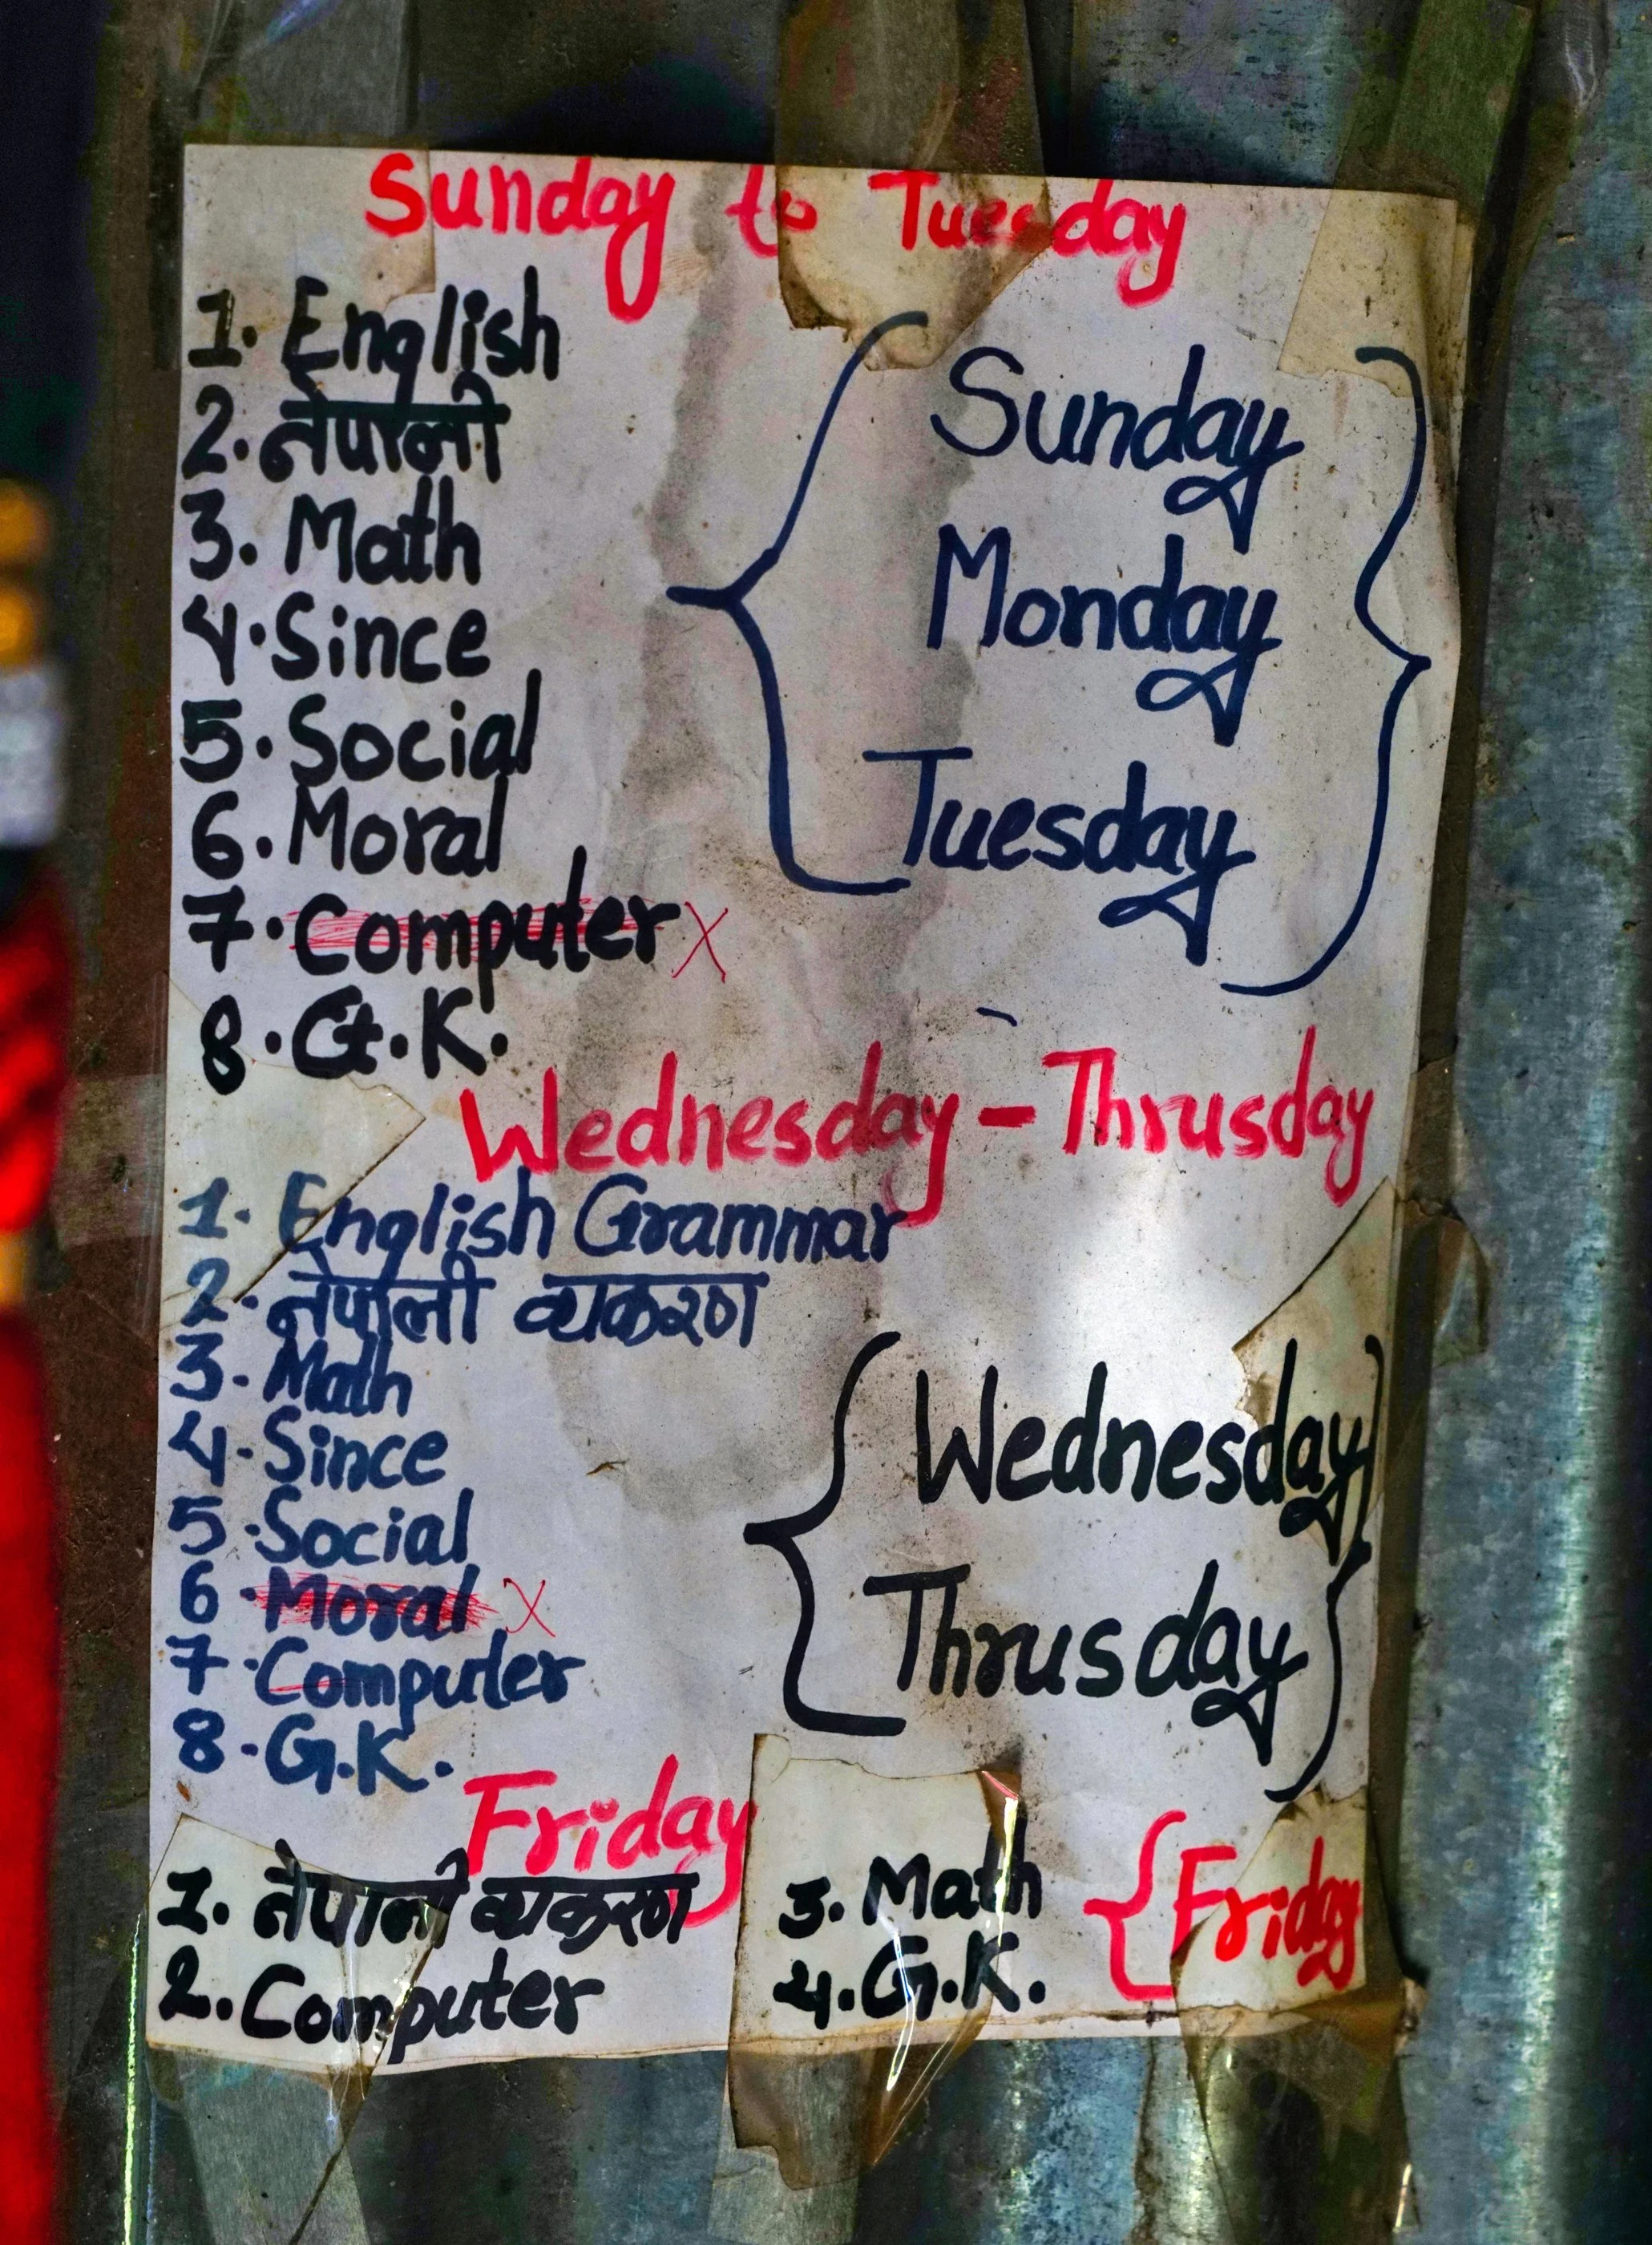 Sunday to Tuesday
1. English
2. नेपाली
3. Math
4. Since
5. Social
6. Moral
7. Computer X
8. G.K.
Sunday
Monday
Tuesday
Wednesday - Thrusday
1. English Grammar
2. नेपाली व्यकरण
3. Math
4. Since
5. Social
6. Moral X
7. Computer
8. G.K.
Wednesday
Thrusday
Friday
1. नेपाली व्यकरण
2. Computer
3. Math
4. G.K.
Friday